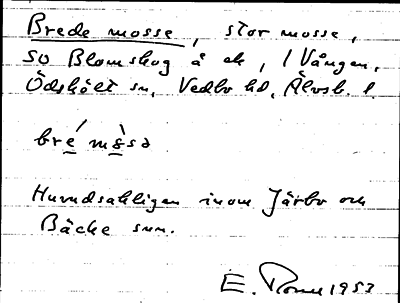 Brede mosse, stor mosse,
SO Blomskog å ek, i Vången,
Ödskölt sn, Vedbo hd, Älvsb. l.
bre̱ mo̱sə
Huvudsakligen inom Järbo och
Bäcke snr.
E. 1953